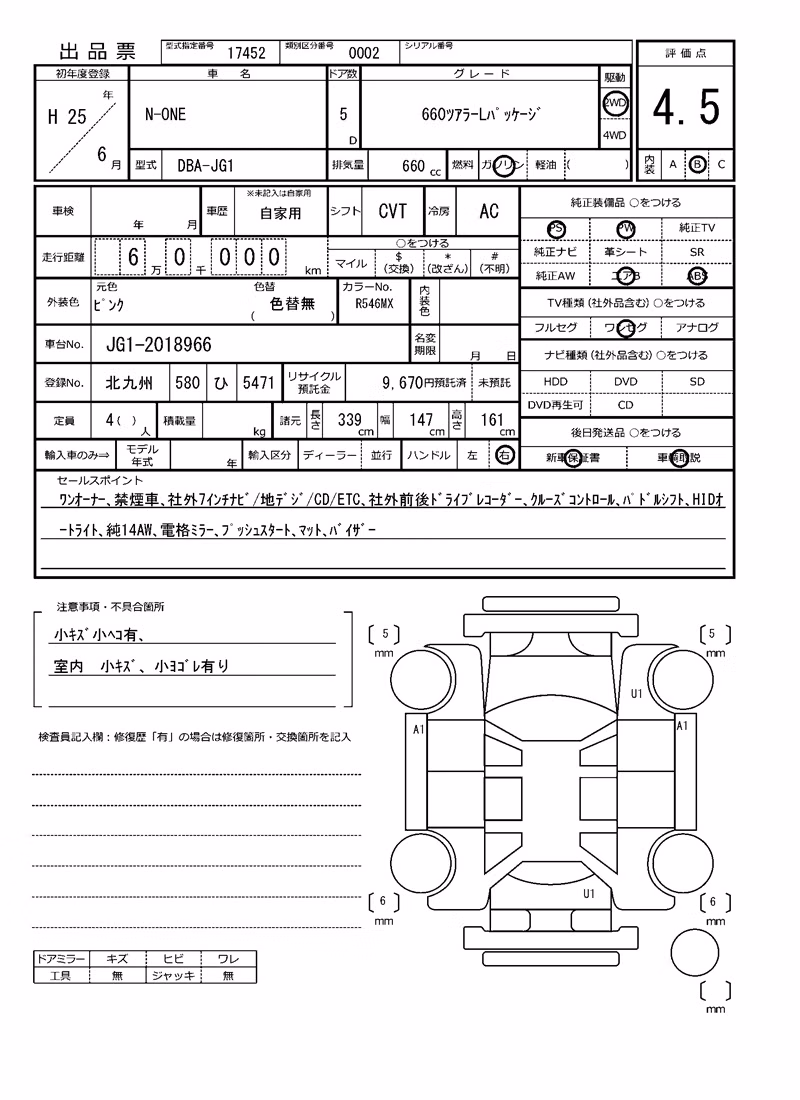 出品票 型式指定番号 17452 類別区分番号 0002 シリアル番号
評価点
4.5
内装 A B C
初年度登録 車名 ドア数 グレード 駆動
H 25 年 6 月 N-ONE 5 D 660ツアラーLパッケージ 2WD 4WD
型式 DBA-JG1 排気量 660 cc 燃料 ガソリン 軽油 ( )
車検 年 月 車歴 ※未記入は自家用 自家用 シフト CVT 冷房 AC
走行距離 6 万 0 千 0 0 0 km ○をつける
マイル $ (交換) * (改ざん) # (不明)
外装色 元色 ピンク 色替 ( 色替無 ) カラーNo. R546MX 内装色
車台No. JG1-2018966 名変期限 月 日
登録No. 北九州 580 ひ 5471 リサイクル預託金 9,670円預託済 未預託
定員 4 ( ) 人 積載量 kg 諸元 長さ 339 cm 幅 147 cm 高さ 161 cm
輸入車のみ⇒ モデル年式 年 輸入区分 ディーラー 並行 ハンドル 左 右
純正装備品 ○をつける
PS PW 純正TV
純正ナビ 革シート SR
純正AW エアB ABS
TV種類(社外品含む) ○をつける
フルセグ ワンセグ アナログ
ナビ種類(社外品含む) ○をつける
HDD DVD SD
DVD再生可 CD
後日発送品 ○をつける
新車保証書 車輌取説
セールスポイント
ワンオーナー、禁煙車、社外7インチナビ/地デジ/CD/ETC、社外前後ドライブレコーダー、クルーズコントロール、パドルシフト、HIDオ
ートライト、純14AW、電格ミラー、プッシュスタート、マット、バイザー
注意事項・不具合箇所
小キズ小ヘコ有、
室内 小キズ、小ヨゴレ有り
検査員記入欄:修復歴「有」の場合は修復箇所・交換箇所を記入
ドアミラー キズ ヒビ ワレ
工具 無 ジャッキ 無
5 mm
5 mm
U1
A1
A1
U1
6 mm
6 mm
mm